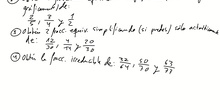 gráficamente:
2/5, 3/4 y 1/2
③ Obtén 2 fracc. equiv. simplificando (si puedes) sólo
de: 12/30, 4/14 y 20/30
④ Obtén la fracc. irreducible de: 32/64, 50/70 y 63/77